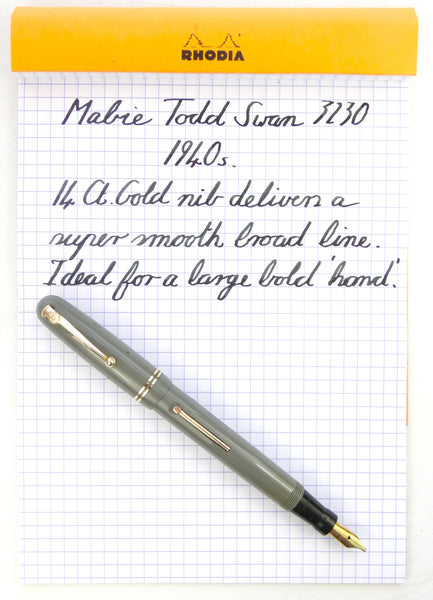 RHODIA
Mabie Todd Swan 3230
1940s.
14 Ct. Gold nib delivers a
super smooth broad line.
Ideal for a large bold 'hand'.